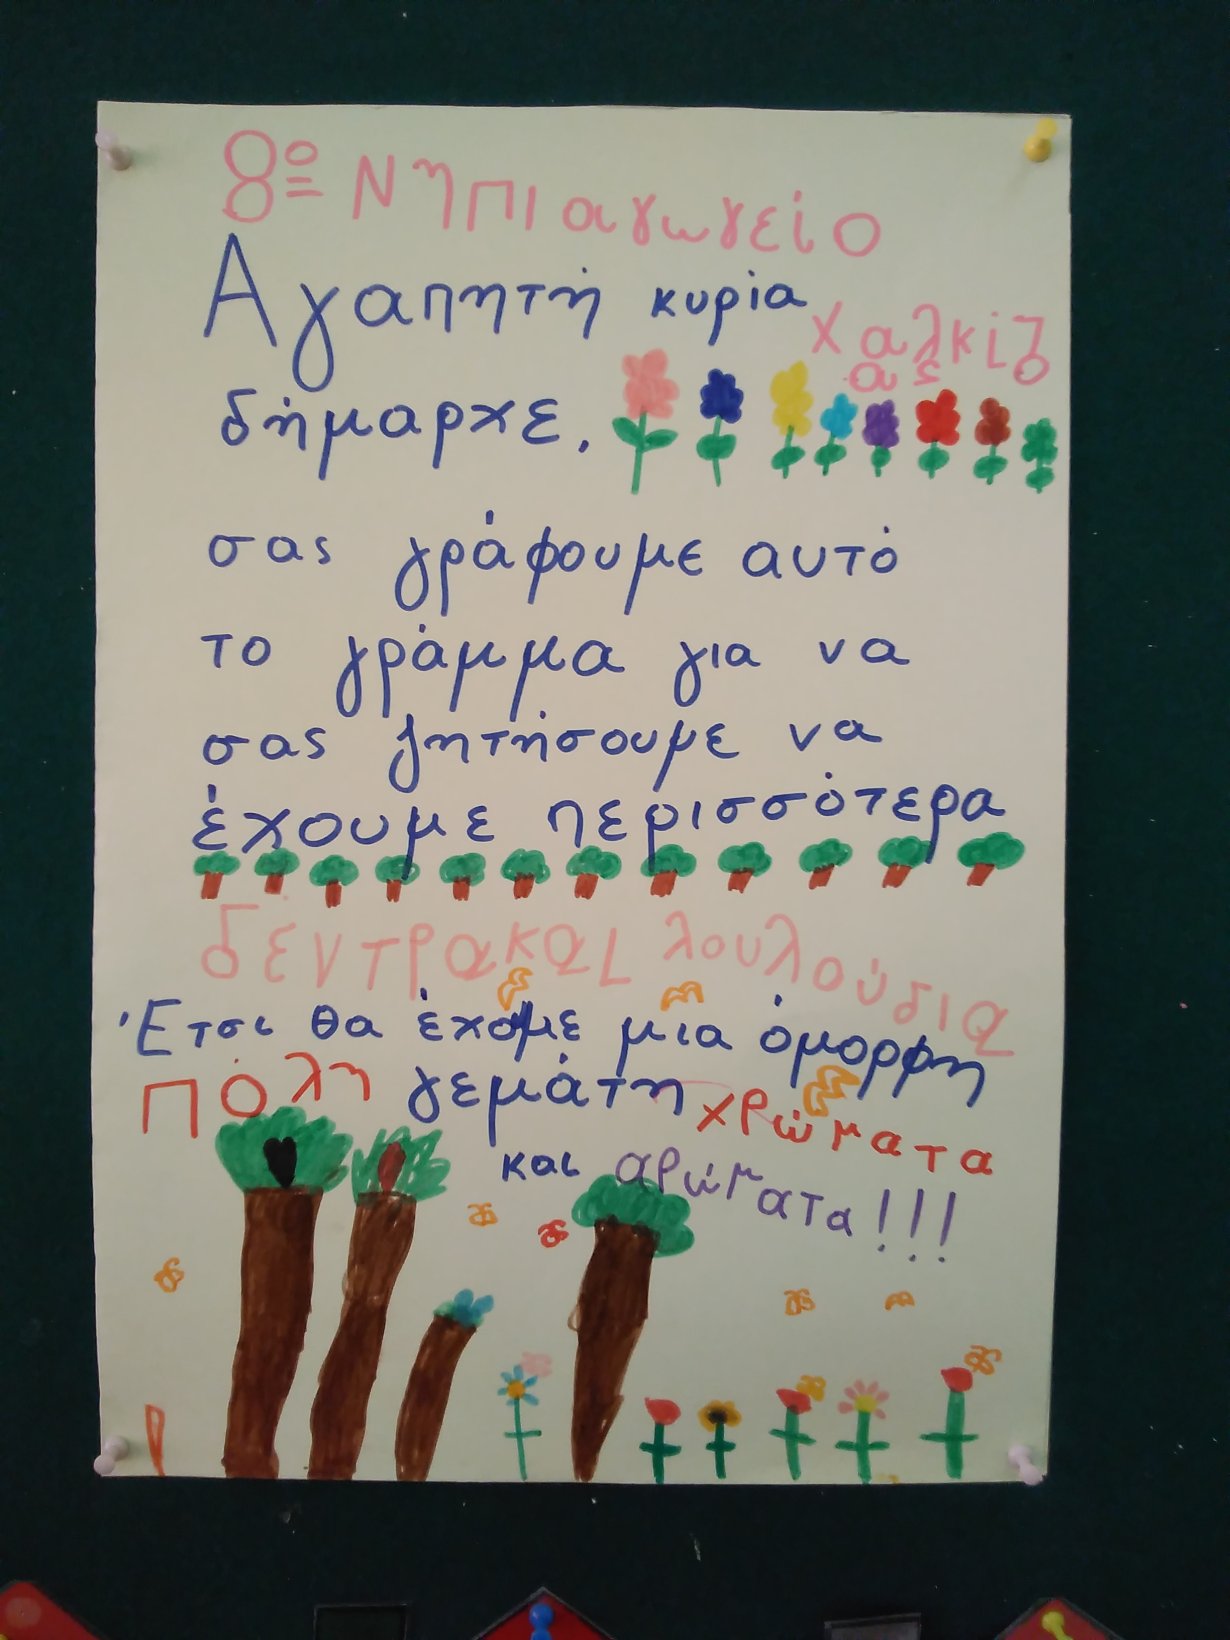 8ο Νηπιαγωγείο
Χαλκίδ
ας
Αγαπητή κυρία
δήμαρχε,
σας γράφουμε αυτό
το γράμμα για να
σας ζητήσουμε να
έχουμε περισσότερα
δέντρα και λουλούδια
Έτσι θα έχουμε μια όμορφη
πόλη γεμάτη χρώματα
και αρώματα!!!